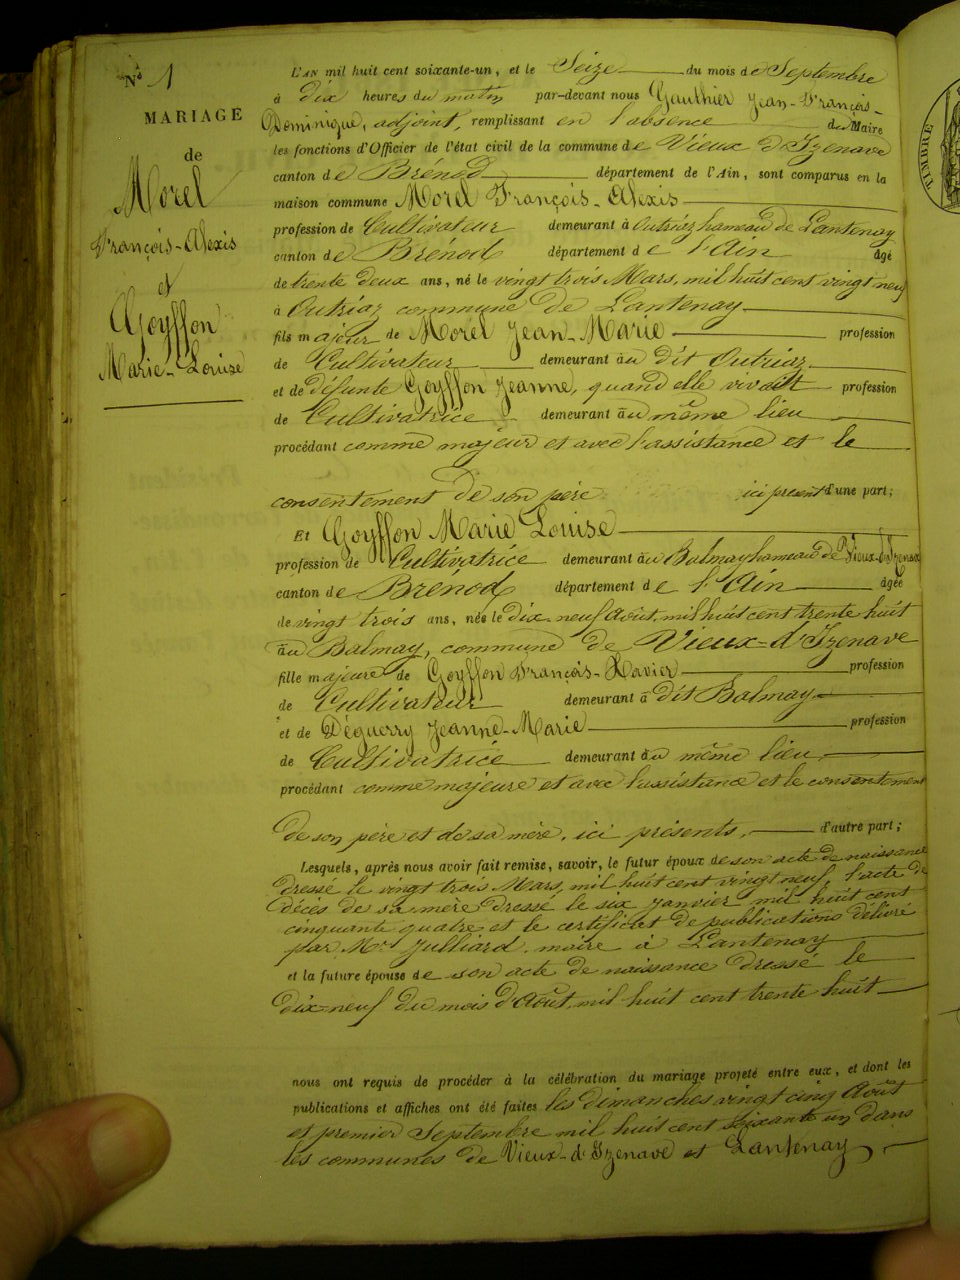 N° 1
MARIAGE
de
Morel
François-Alexis
et
Goyffon
Marie-Louise
L'AN mil huit cent soixante-un, et le Seize du mois de Septembre
à dix heures du matin par-devant nous Gauthier Jean-François-
Dominique, adjoint, remplissant en l'absence du Maire
les fonctions d'Officier de l'état civil de la commune de Vieux d'Izenave
canton de Brénod département de l'Ain, sont comparus en la
maison commune Morel François-Alexis
profession de Cultivateur demeurant à Outriaz hameau de Lantenay
canton de Brénod département de l'Ain âgé
de trente deux ans, né le vingt trois Mars, mil huit cent vingt neuf
à Outriaz commune de Lantenay
fils majeur de Morel Jean-Marie profession
de Cultivateur demeurant au dit Outriaz
et de défunte Goyffon Jeanne, quand elle vivait profession
de Cultivatrice demeurant au même lieu
procédant comme majeur et avec l'assistance et le
consentement de son père ici présent d'une part;
Et Goyffon Marie Louise
profession de Cultivatrice demeurant au Balmay hameau de Vieux-d'Izenave
canton de Brénod département de l'Ain âgée
de vingt trois ans, née le dix neuf Août, mil huit cent trente huit
au Balmay, commune de Vieux-d'Izenave
fille majeure de Goyffon François-Xavier profession
de Cultivateur demeurant à dit Balmay
et de Déguerry Jeanne-Marie profession
de Cultivatrice demeurant au même lieu
procédant comme majeure et avec l'assistance et le consentement
de son père et de sa mère, ici présents, d'autre part;
Lesquels, après nous avoir fait remise, savoir, le futur époux de son acte de naissance
dressé le vingt trois Mars, mil huit cent vingt neuf, l'acte de
décès de sa mère dressé le six Janvier mil huit cent
cinquante quatre et le certificat de publications délivré
par Mr Julliard maire à Lantenay
et la future épouse de son acte de naissance dressé le
dix-neuf du mois d'Août, mil huit cent trente huit
nous ont requis de procéder à la célébration du mariage projeté entre eux, et dont les
publications et affiches ont été faites les dimanches vingt cinq Août
et premier Septembre mil huit cent soixante un dans
les communes de Vieux-d'Izenave et Lantenay
TIMBRE